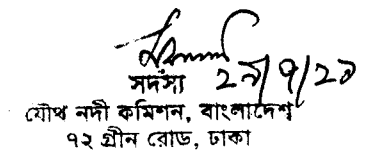 সদস্য ২৯/৭/২১
যৌথ নদী কমিশন, বাংলাদেশ
৭২ গ্রীন রোড, ঢাকা